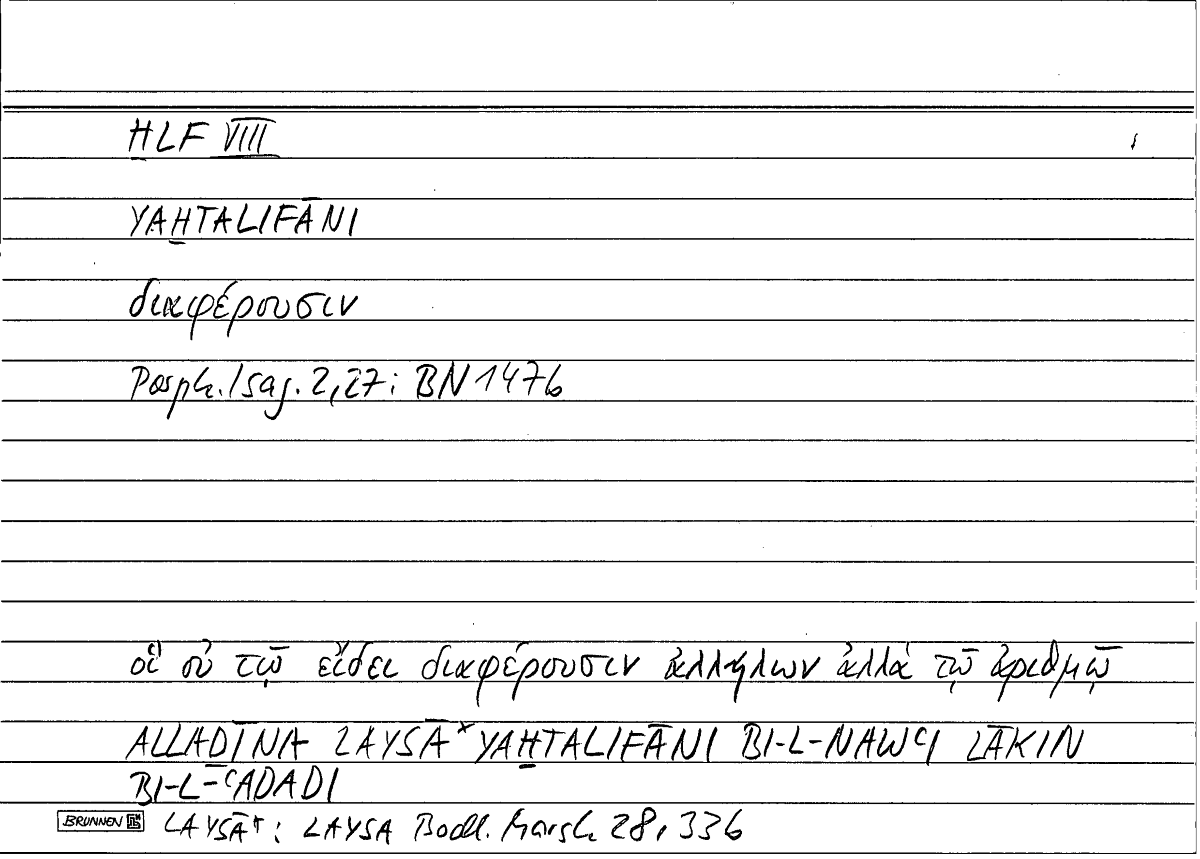 H̲LF VIII
YAH̲TALIFĀNI
διαφέρουσιν
Porph. Isag. 2,27: BN 147b
οἳ οὐ τῷ εἴδει διαφέρουσιν ἀλλήλων ἀλλὰ τῷ ἀριθμῷ
ALLAD̲ĪNA LAYSĀ* YAH̲TALIFĀNI BI-L-NAWʿI LĀKIN
BI-L-ʿADADI
BRUNNEN LAYSĀ*: LAYSA Bodl. Marsh 28, 33b